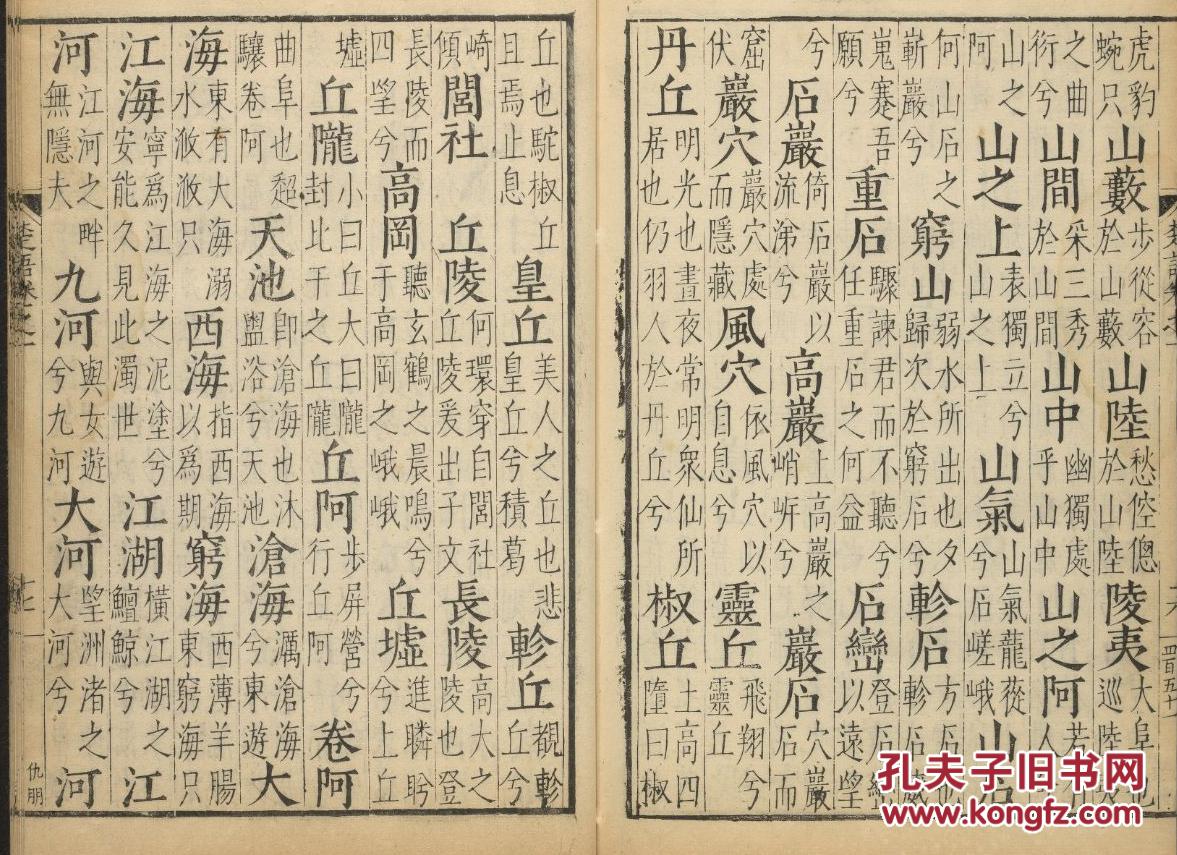 虎豹蜿只 山藪 步從容於山藪 山陸 愁倥傯於山陸 陵夷 大阜也巡陸夷
之曲衍兮 山間 采三秀於山間 山中 幽獨處乎山中 山之阿 若有人
山之阿 山之上 表獨立兮山之上 山氣 山氣巃嵸兮石嵯峨 山石
何山石之嶄巖兮 窮山 弱水所出也夕歸次於窮石兮 軫石 方石也軫石崴
嵬蹇吾願兮 重石 驟諫君而不聽兮任重石之何益 石巒 登石巒以遠望
兮 石巖 倚石巖以流涕兮 高巖 上高巖之峭岸兮 巖石 穴巖石而
窟伏 巖穴 巖穴處而隱藏 風穴 依風穴以自息兮 靈丘 飛翔兮靈丘
丹丘 明光也晝夜常明眾仙所居也仍羽人於丹丘兮 椒丘 土高四墮曰椒
丘也駝椒丘且焉止息 皇丘 美人之丘也悲皇丘兮積葛 軫丘 覩軫丘兮
崎傾 閭社 丘陵 何環穿自閭社丘陵爰出子文 長陵 高大之陵也登
長陵而四望兮 高岡 聽玄鶴之晨鳴兮于高岡之峨峨 丘墟 進瞵盻兮上丘
墟 丘隴 小曰丘大曰隴封比干之丘隴 丘阿 步屏營兮行丘阿 卷阿
曲阜也超驤卷阿 天池 卽滄海也沐盥浴兮天池 滄海 濿滄海兮東遊 大
海 東有大海溺水浟浟只 西海 指西海以為期 窮海 西薄羊腸東窮海只
江海 寧為江海之泥塗兮安能久見此濁世 江湖 橫江湖之鱣鯨兮 江
河 江河之畔無隱夫 九河 與女遊兮九河 大河 望大河之洲渚兮 河
楚語
七
仇朋
孔夫子旧书网
www.kongfz.com